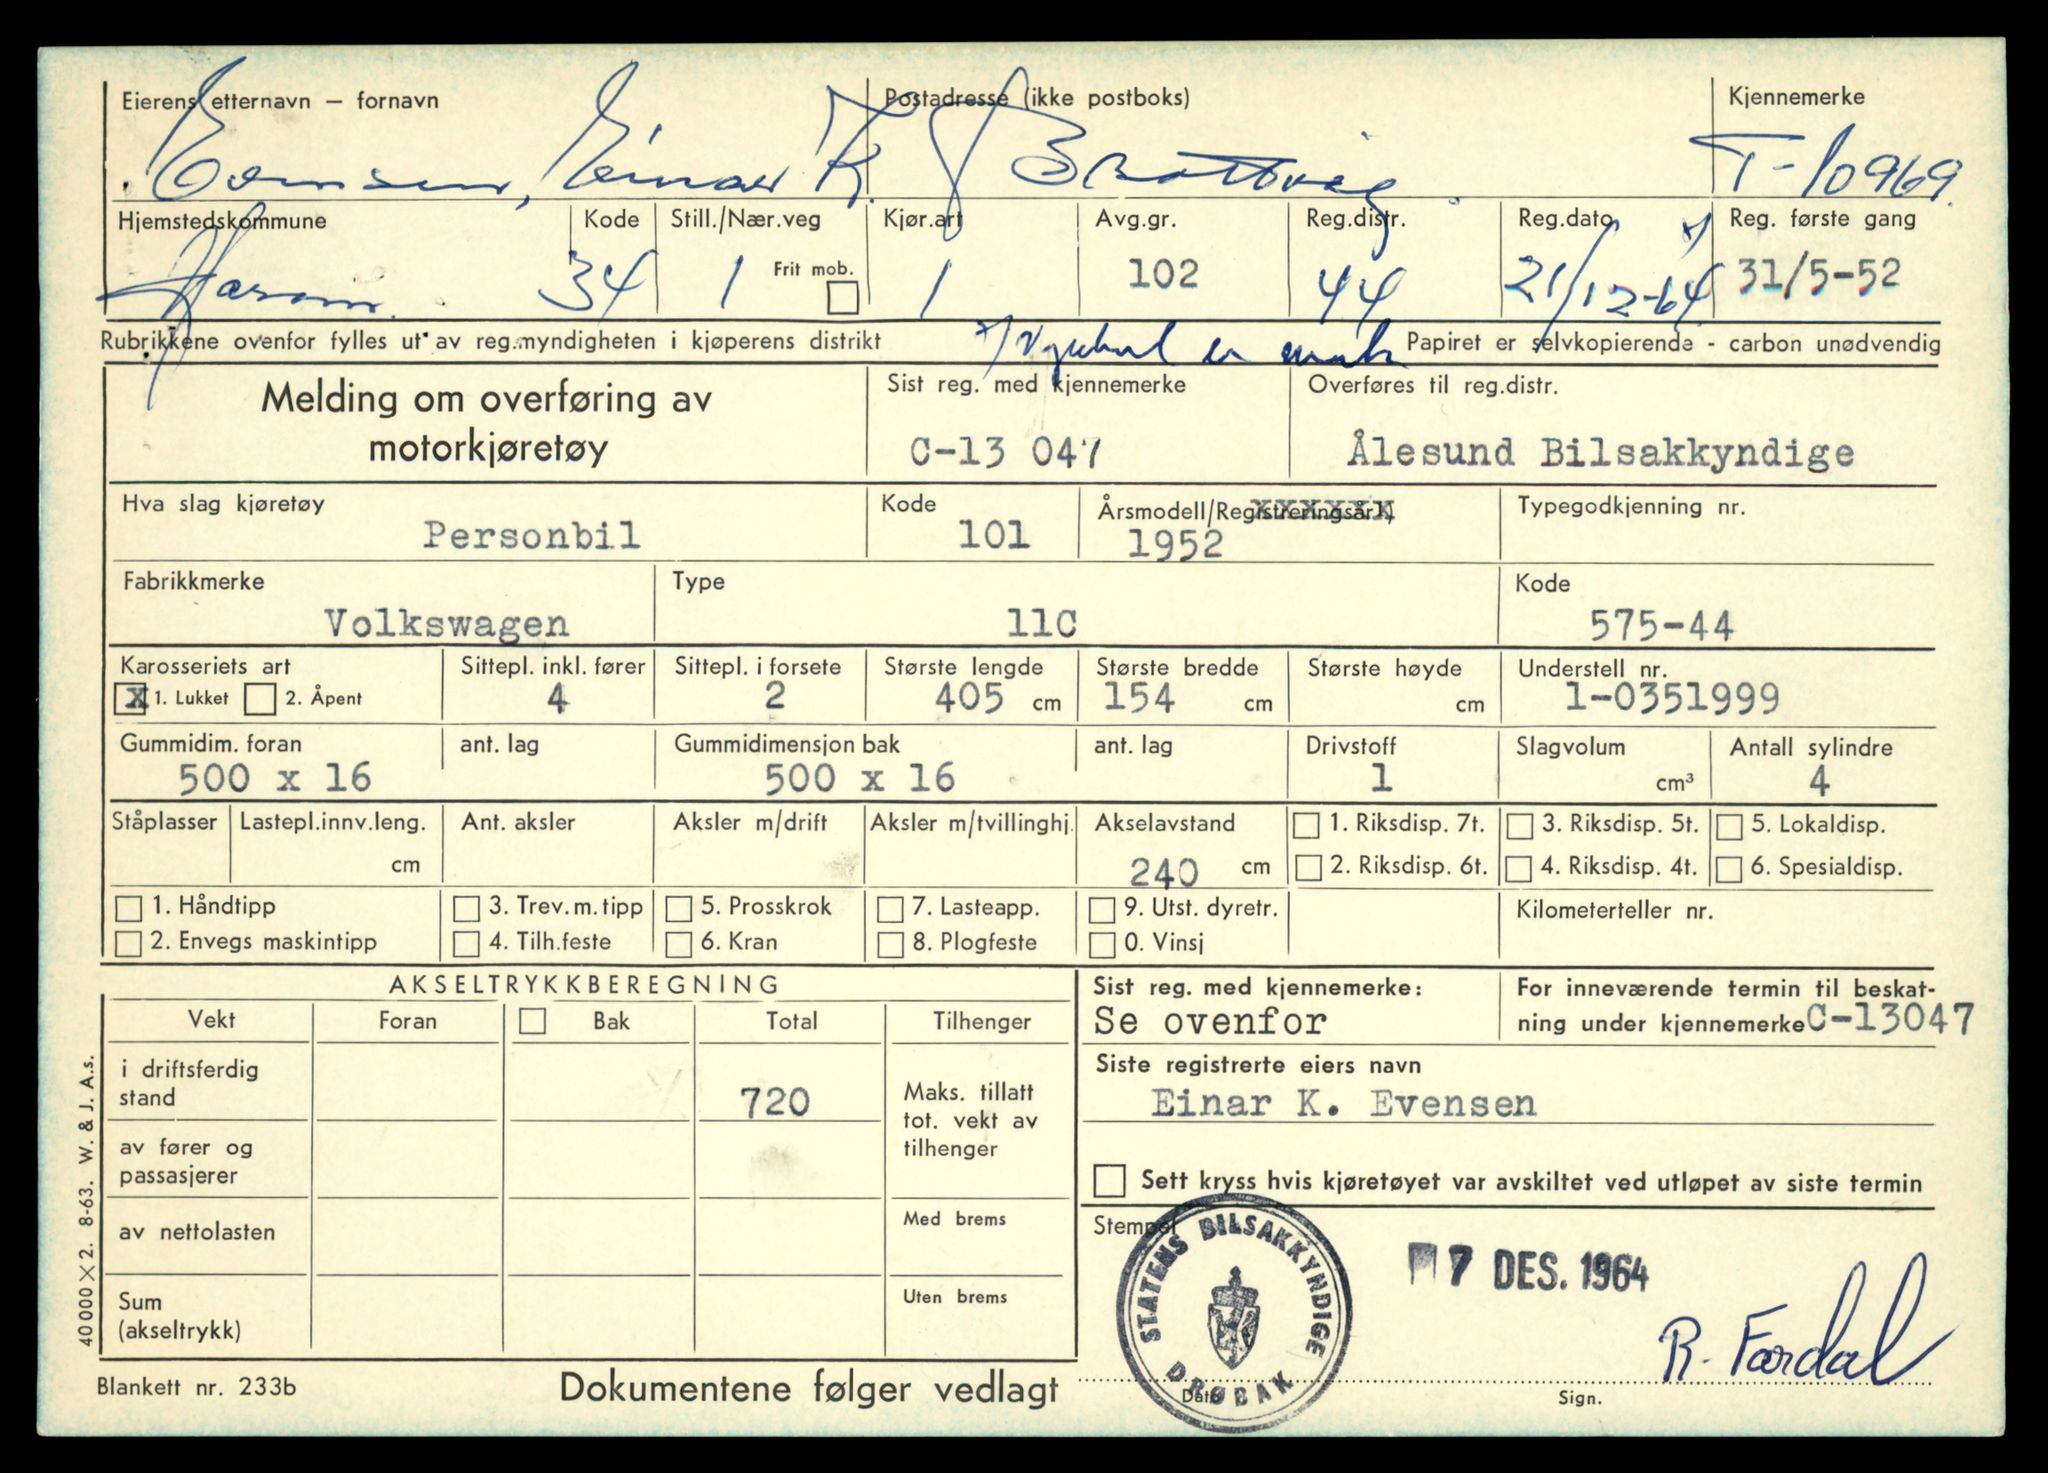 Eierens etternavn – fornavn
Postadresse (ikke postboks)
Kjennemerke
Evensen, Einar K. Brattvåg T-10969.
Hjemstedskommune Kode Still./Nær.veg Kjør.art Avg.gr. Reg.distr. Reg.dato Reg. første gang
Haram. 34 1 Frit mob. 1 102 44 21/12-64 x) 31/5-52
Rubrikkene ovenfor fylles ut av reg.myndigheten i kjøperens distrikt
x) er
Papiret er selvkopierende - carbon unødvendig
Melding om overføring av
motorkjøretøy
Sist reg. med kjennemerke
C-13 047
Overføres til reg.distr.
Ålesund Bilsakkyndige
Hva slag kjøretøy Kode Årsmodell/Registreringsår 1) Typegodkjenning nr.
Personbil 101 1952
Fabrikkmerke Type Kode
Volkswagen 11C 575-44
Karosseriets art Sittepl. inkl. fører Sittepl. i forsete Største lengde Største bredde Største høyde Understell nr.
x 1. Lukket 2. Åpent 4 2 405 cm 154 cm cm 1-0351999
Gummidim. foran ant. lag Gummidimensjon bak ant. lag Drivstoff Slagvolum Antall sylindre
500 x 16 500 x 16 1 cm³ 4
Ståplasser Lastepl.innv.leng. Ant. aksler Aksler m/drift Aksler m/tvillinghj. Akselavstand 1. Riksdisp. 7t. 3. Riksdisp. 5t. 5. Lokaldisp.
cm 240 cm 2. Riksdisp. 6t. 4. Riksdisp. 4t. 6. Spesialdisp.
1. Håndtipp 3. Trev.m.tipp 5. Prosskrok 7. Lasteapp. 9. Utst. dyretr. Kilometerteller nr.
2. Envegs maskintipp 4. Tilh.feste 6. Kran 8. Plogfeste 0. Vinsj
AKSELTRYKKBEREGNING
Vekt Foran Bak Total Tilhenger
i driftsferdig
stand
720
Maks. tillatt
tot. vekt av
tilhenger
av fører og
passasjerer
av nettolasten
Med brems
Sum
(akseltrykk)
Uten brems
Sist reg. med kjennemerke:
Se ovenfor
For inneværende termin til beskat-
ning under kjennemerke C-13047
Siste registrerte eiers navn
Einar K. Evensen
Sett kryss hvis kjøretøyet var avskiltet ved utløpet av siste termin
Stempel
STATENS BILSAKKYNDIGE
DRØBAK
7 DES. 1964
R. Fardal
Dato
Sign.
40 000 × 2. 8-63. W. & J. A.s.
Blankett nr. 233b
Dokumentene følger vedlagt